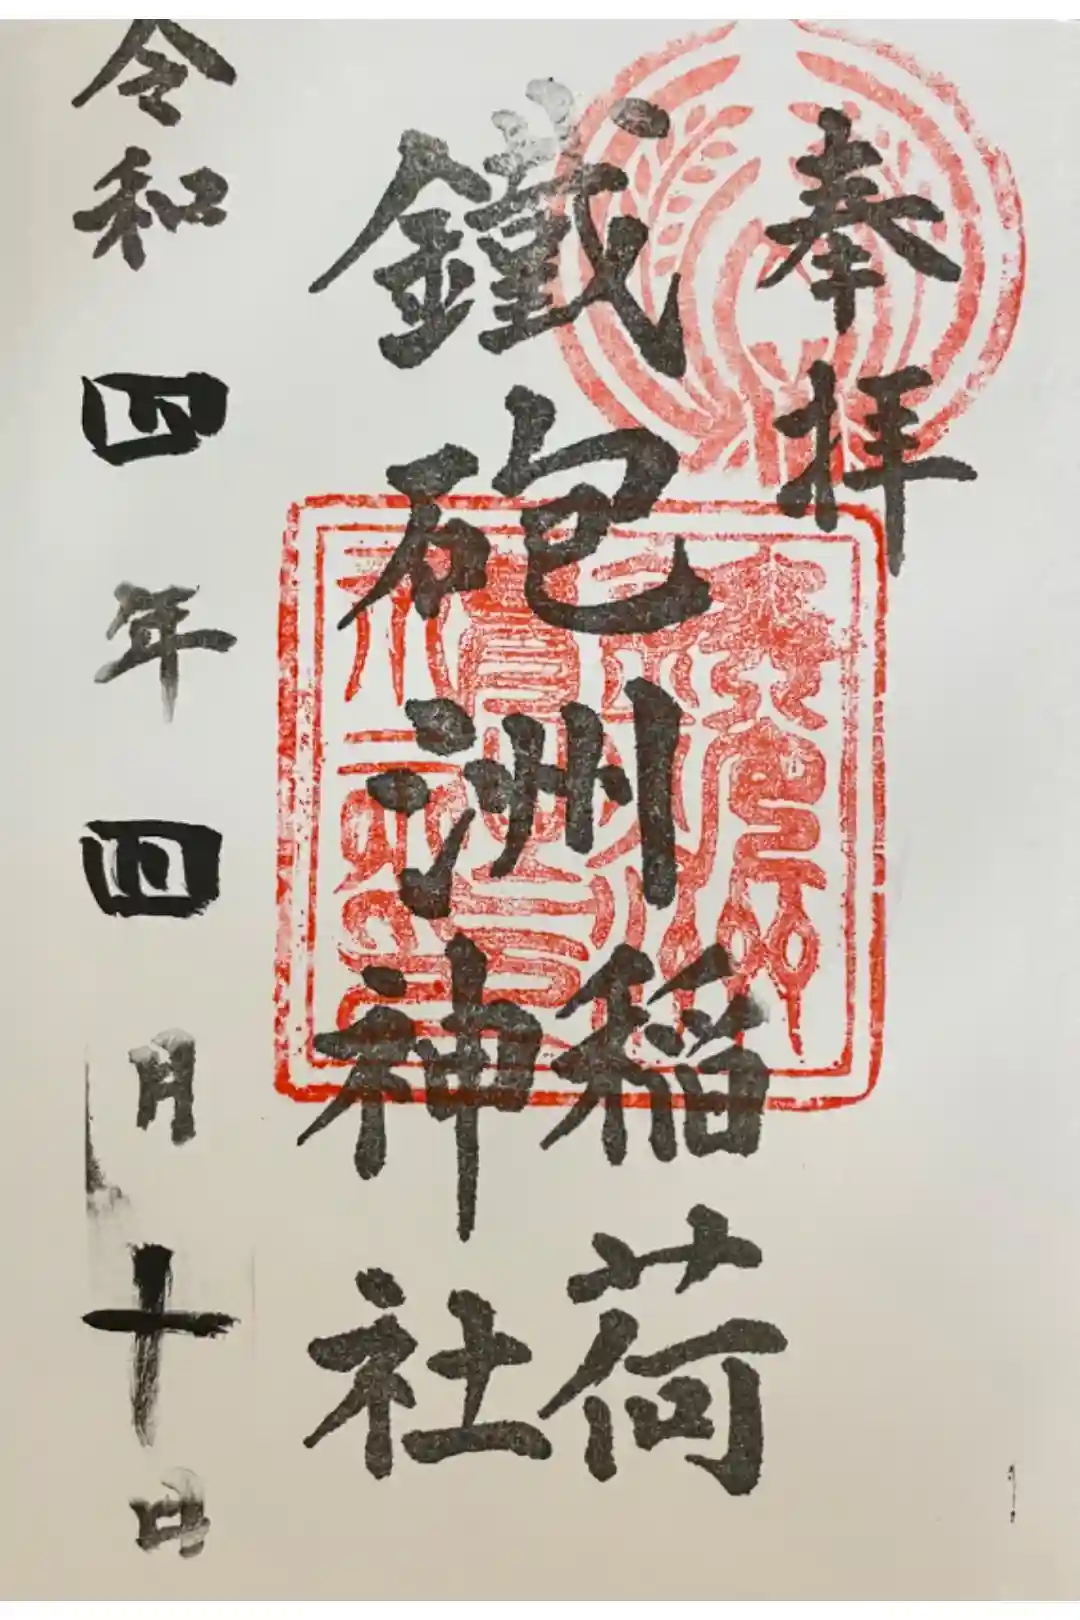 奉拝
鐵砲洲
稲荷
神社
令和四年四月十日